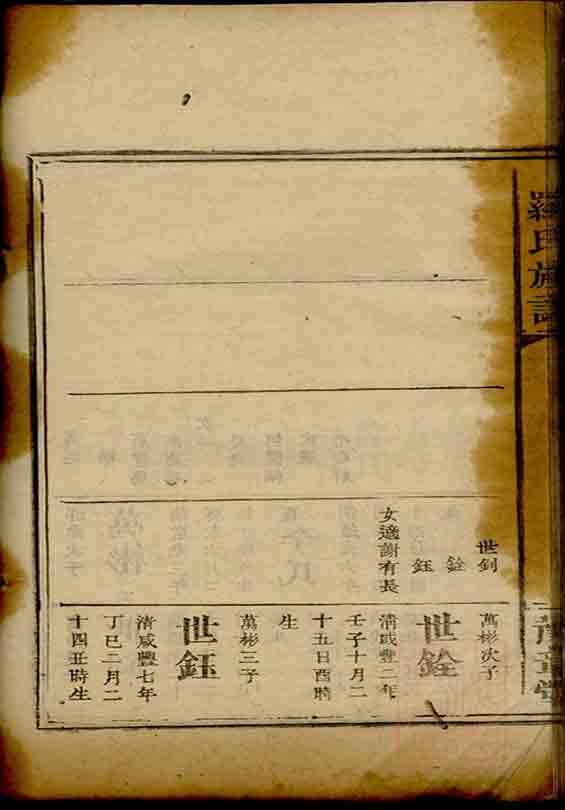 羅氏族譜
豫章堂
世釗
銓
鈺
女適謝有長
萬彬次子
世銓
清咸豐二年
壬子十月二
十五日酉時
生
萬彬三子
世鈺
清咸豐七年
丁巳二月二
十四丑時生